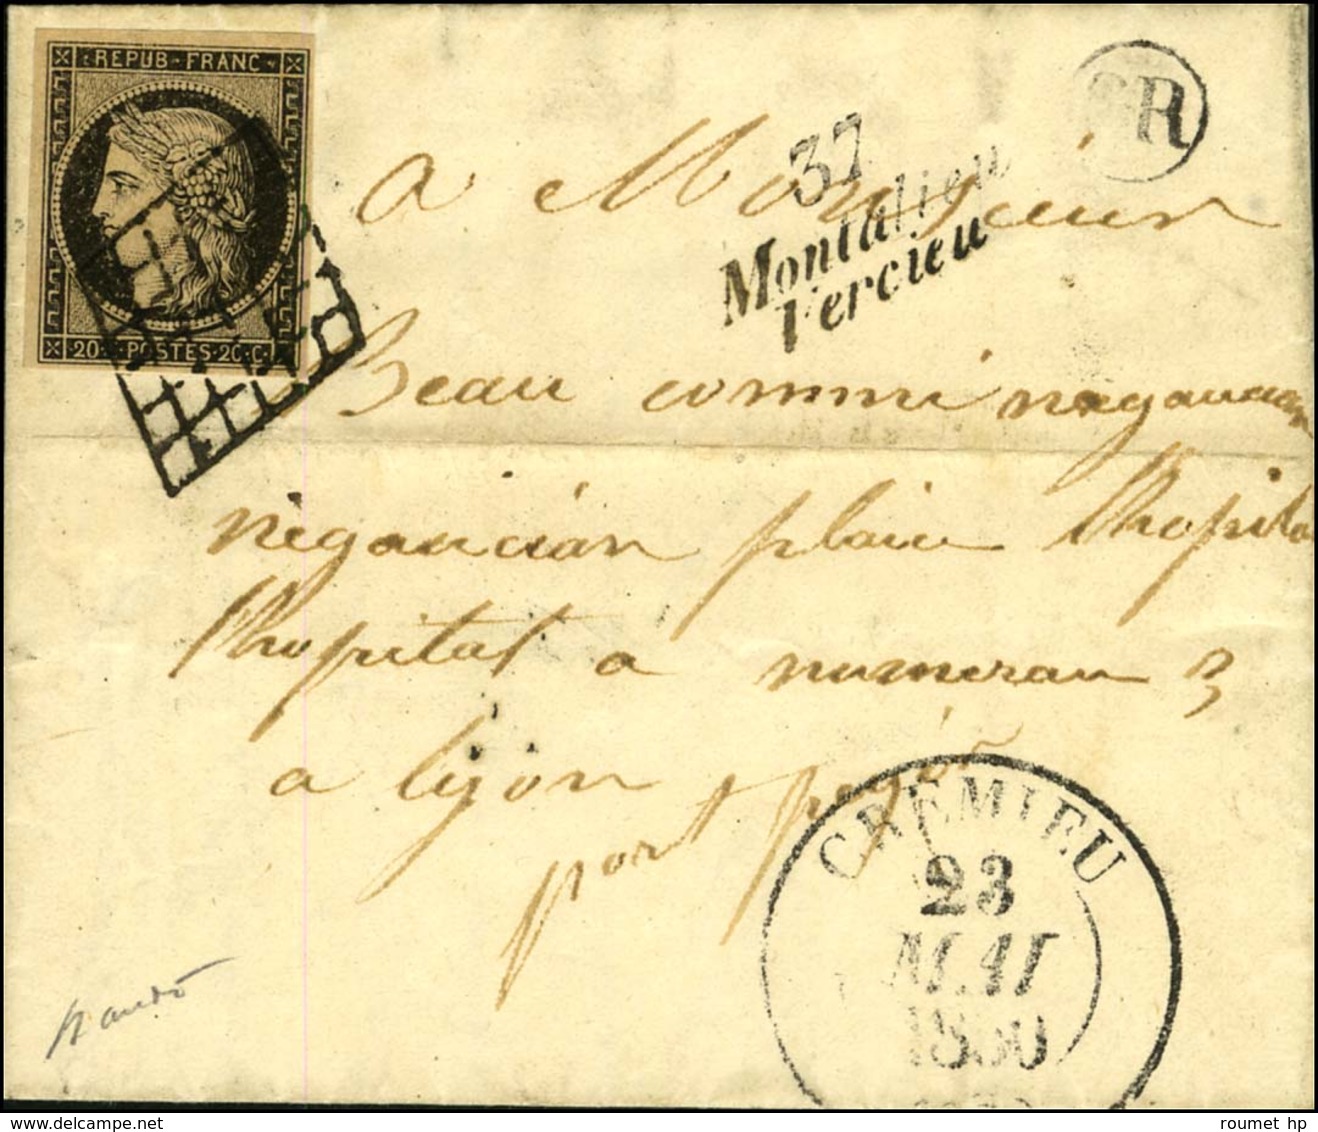 REPUB·FRANC
20c POSTES 20c
R
37
Montalieu
Vercieu
a Monsieur
Beau commi negaucian
negaucian place lhopita
lhopital a numerau 3
a lyon
port payé
CRÉMIEU
23
MAI
1850
www.delcampe.net
roumet hp